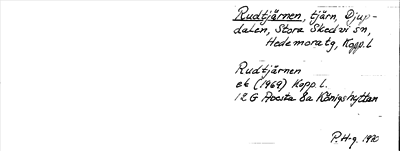 Rudtjärnen, tjärn, Djup-
dalen, Stora Skedvi sn,
Hedemora tg, Kopp. l
Rudtjärnen
ek (1969) Kopp. l.
12 G Avesta 8a Königshyttan
P. H-g. 1970